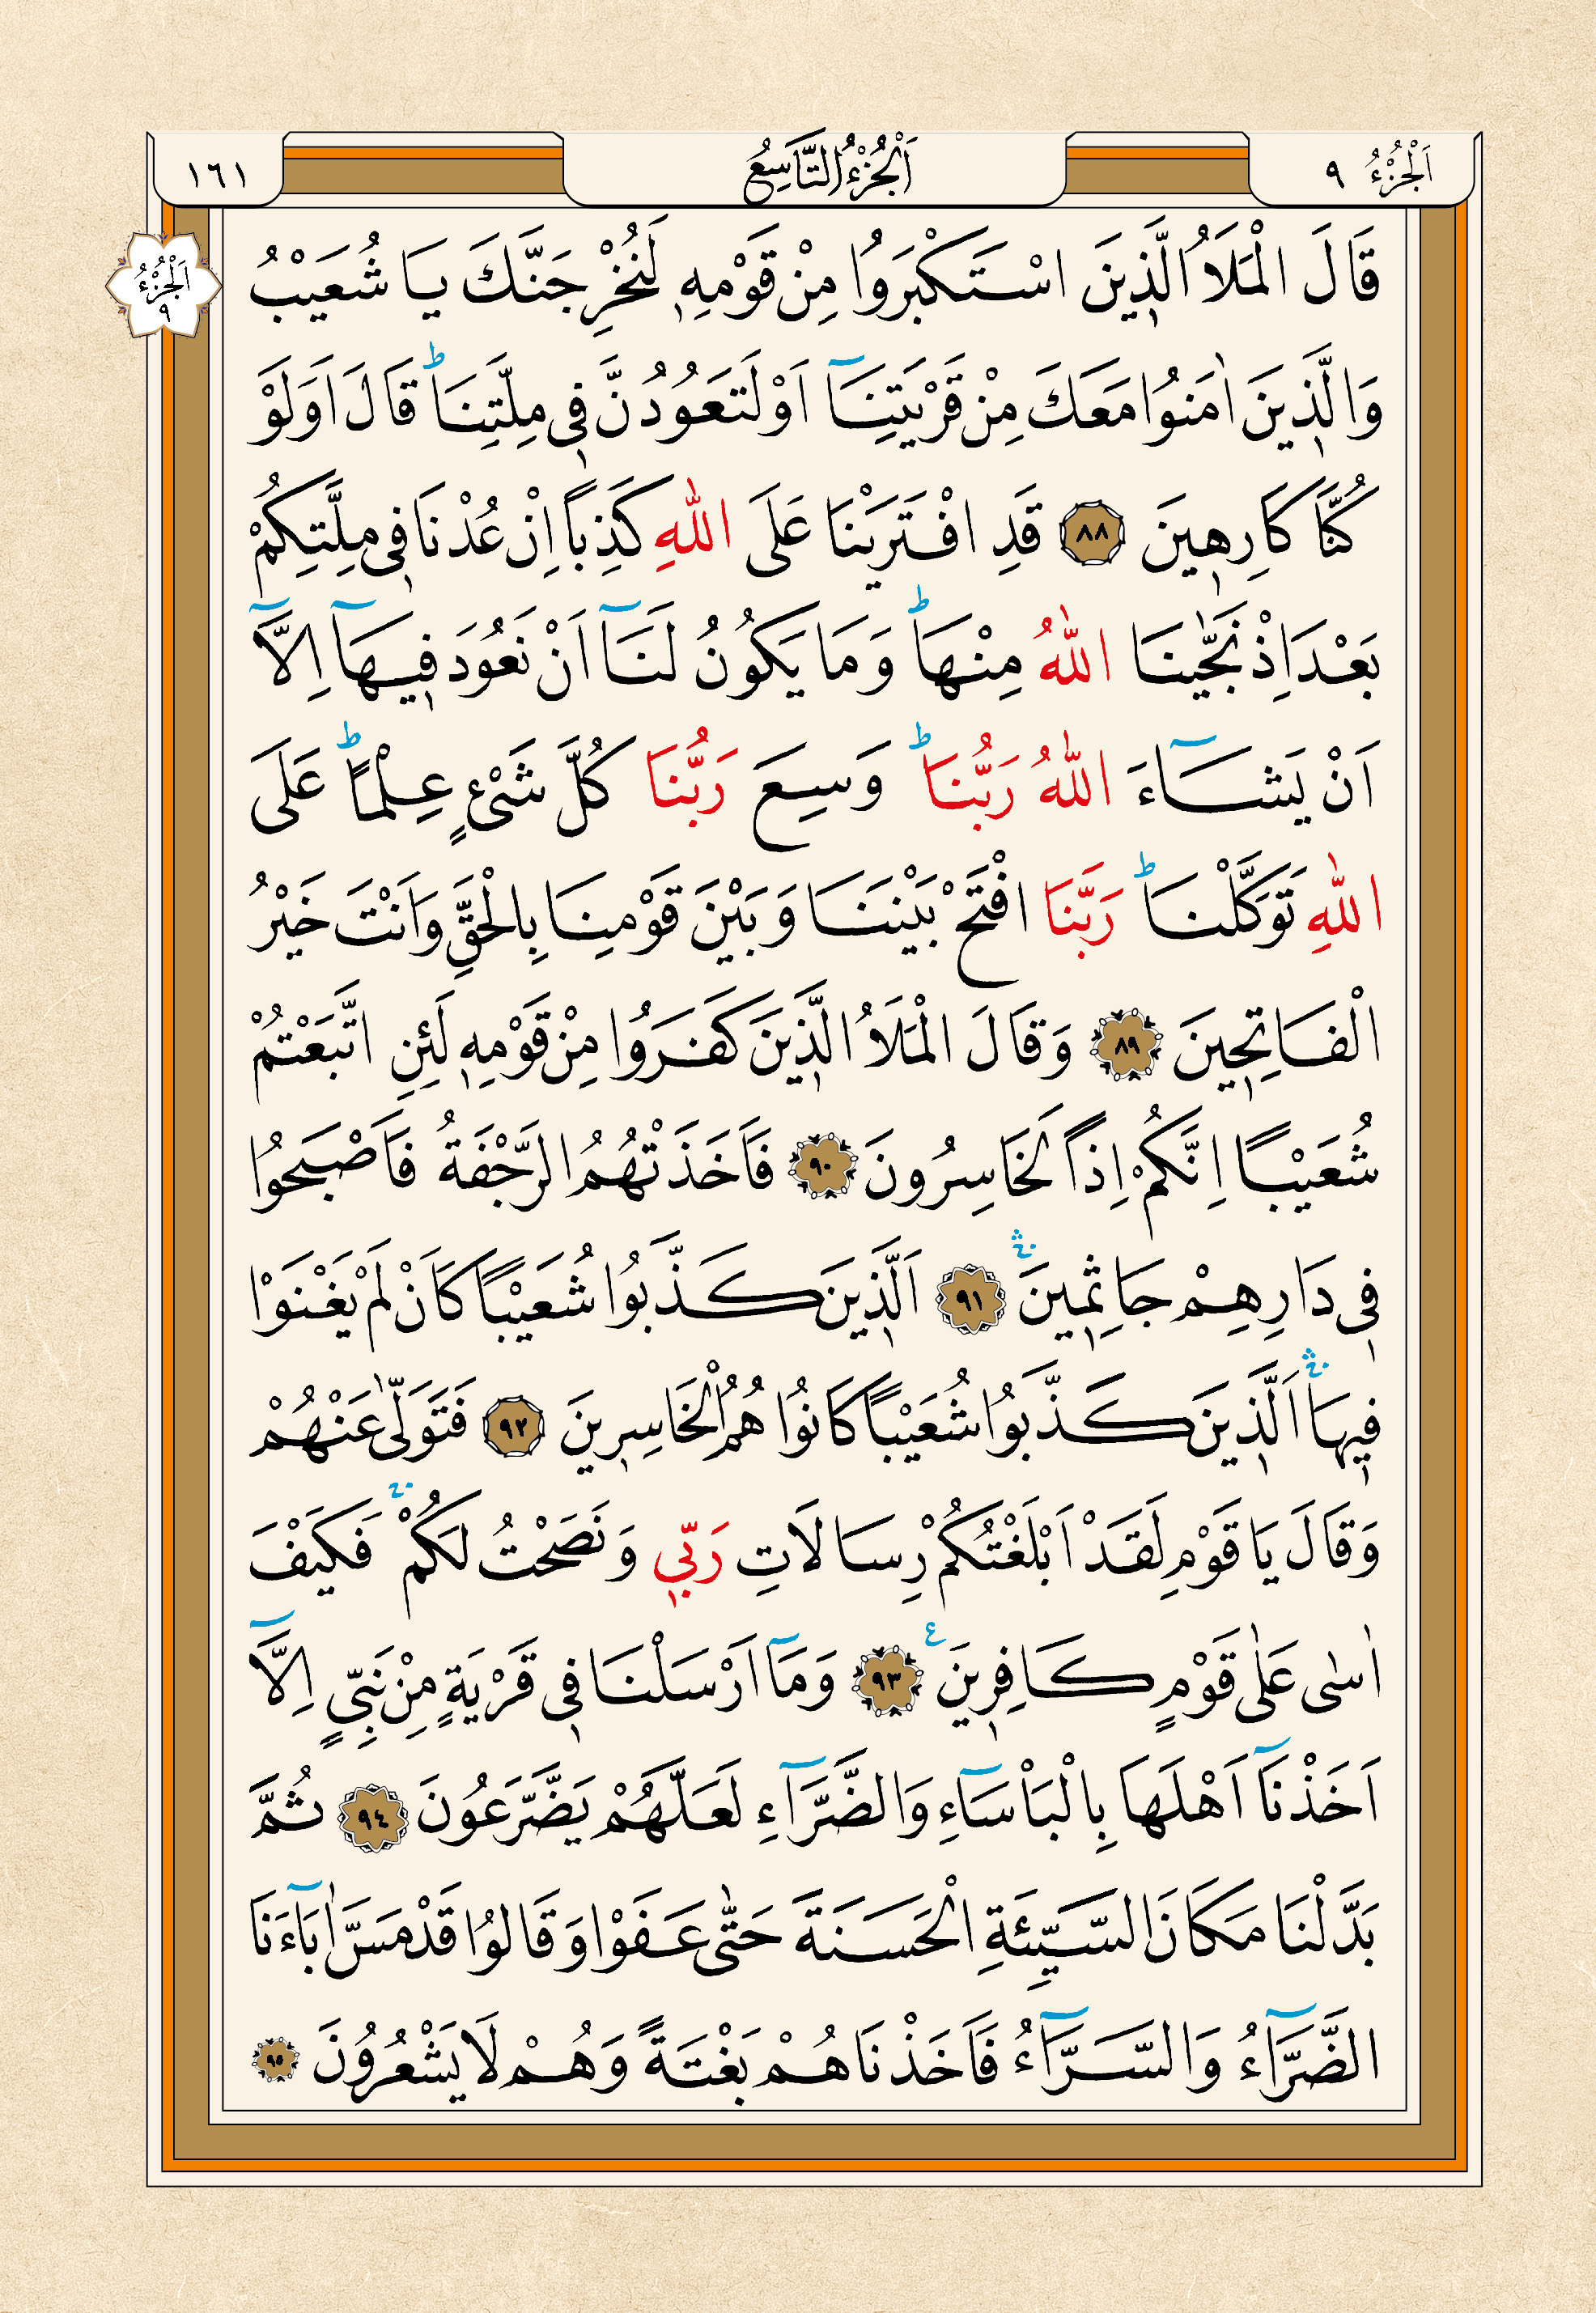 اَلْجُزْءُ ٩
اَلْجُزْءُ التَّاسِعُ
١٦١
اَلْجُزْءُ
٩
قَالَ الْمَلَاُ الَّذٖينَ اسْتَكْبَرُوا مِنْ قَوْمِهٖ لَنُخْرِجَنَّكَ يَا شُعَيْبُ
وَالَّذٖينَ اٰمَنُوا مَعَكَ مِنْ قَرْيَتِنَٓا اَوْ لَتَعُودُنَّ فٖى مِلَّتِنَاؕ قَالَ اَوَلَوْ
كُنَّا كَارِهٖينَ ﴿٨٨﴾ قَدِ افْتَرَيْنَا عَلَى اللّٰهِ كَذِباً اِنْ عُدْنَا فٖى مِلَّتِكُمْ
بَعْدَ اِذْ نَجّٰينَا اللّٰهُ مِنْهَاؕ وَمَا يَكُونُ لَنَٓا اَنْ نَعُودَ فٖيهَٓا اِلَّٓا
اَنْ يَشَٓاءَ اللّٰهُ رَبُّنَاؕ وَسِعَ رَبُّنَا كُلَّ شَىْءٍ عِلْماًؕ عَلَى
اللّٰهِ تَوَكَّلْنَاؕ رَبَّنَا افْتَحْ بَيْنَنَا وَبَيْنَ قَوْمِنَا بِالْحَقِّ وَاَنْتَ خَيْرُ
الْفَاتِحٖينَ ﴿٨٩﴾ وَقَالَ الْمَلَاُ الَّذٖينَ كَفَرُوا مِنْ قَوْمِهٖ لَئِنِ اتَّبَعْتُمْ
شُعَيْباً اِنَّكُمْ اِذاً لَخَاسِرُونَ ﴿٩٠﴾ فَاَخَذَتْهُمُ الرَّجْفَةُ فَاَصْبَحُوا
فٖى دَارِهِمْ جَاثِمٖينَۛۚ ﴿٩١﴾ اَلَّذٖينَ كَذَّبُوا شُعَيْباً كَاَنْ لَمْ يَغْنَوْا
فٖيهَاۛۚ اَلَّذٖينَ كَذَّبُوا شُعَيْباً كَانُوا هُمُ الْخَاسِرٖينَ ﴿٩٢﴾ فَتَوَلّٰى عَنْهُمْ
وَقَالَ يَا قَوْمِ لَقَدْ اَبْلَغْتُكُمْ رِسَالَاتِ رَبّٖى وَنَصَحْتُ لَكُمْۚ فَكَيْفَ
اٰسٰى عَلٰى قَوْمٍ كَافِرٖينَ ع ﴿٩٣﴾ وَمَٓا اَرْسَلْنَا فٖى قَرْيَةٍ مِنْ نَبِىٍّ اِلَّٓا
اَخَذْنَٓا اَهْلَهَا بِالْبَاْسَٓاءِ وَالضَّرَّٓاءِ لَعَلَّهُمْ يَضَّرَّعُونَ ﴿٩٤﴾ ثُمَّ
بَدَّلْنَا مَكَانَ السَّيِّئَةِ الْحَسَنَةَ حَتّٰى عَفَوْا وَقَالُوا قَدْ مَسَّ اٰبَٓاءَنَا
الضَّرَّٓاءُ وَالسَّرَّٓاءُ فَاَخَذْنَاهُمْ بَغْتَةً وَهُمْ لَا يَشْعُرُونَ ﴿٩٥﴾